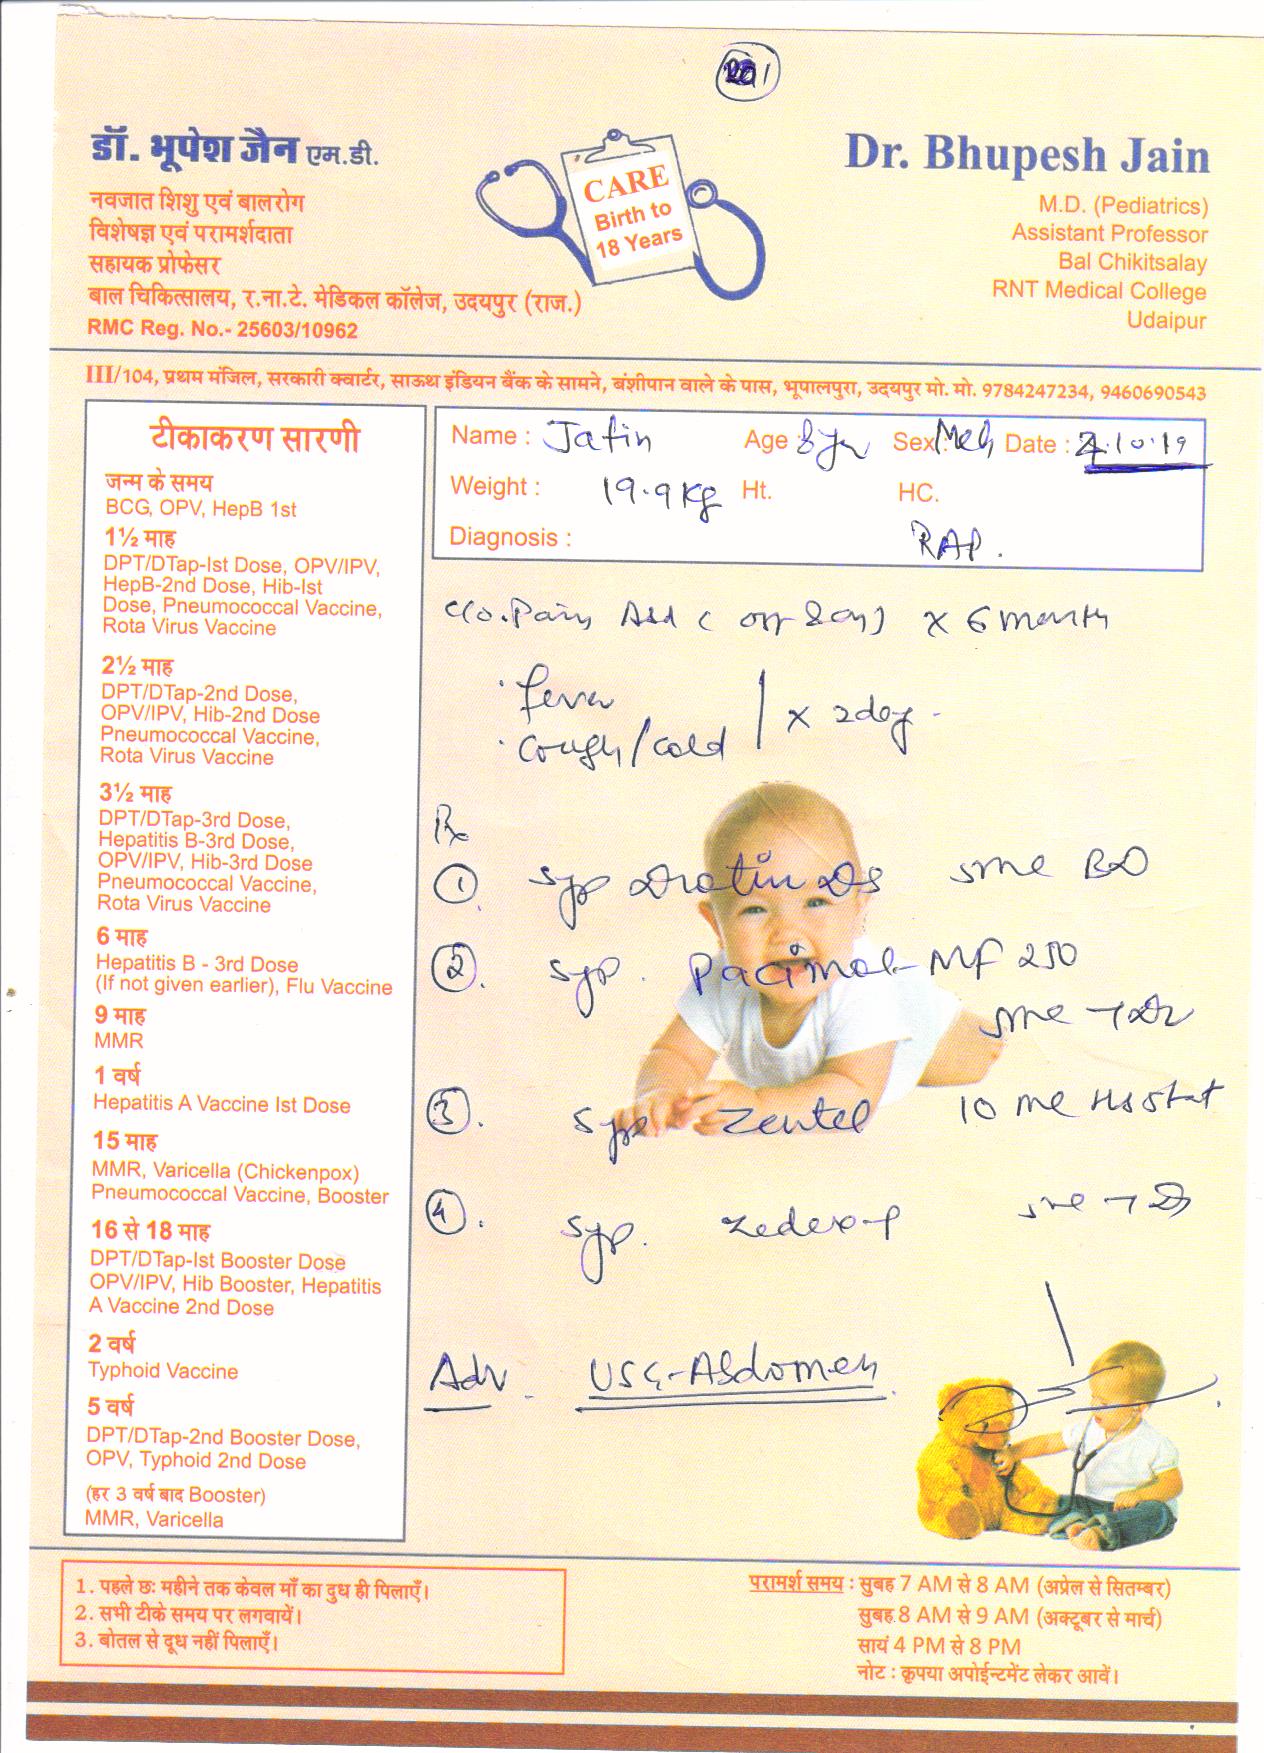 डॉ. भूपेश जैन एम.डी.
नवजात शिशु एवं बालरोग
विशेषज्ञ एवं परामर्शदाता
सहायक प्रोफेसर
बाल चिकित्सालय, र.ना.टे. मेडिकल कॉलेज, उदयपुर (राज.)
RMC Reg. No.- 25603/10962
CARE
Birth to
18 Years
Dr. Bhupesh Jain
M.D. (Pediatrics)
Assistant Professor
Bal Chikitsalay
RNT Medical College
Udaipur
III/104, प्रथम मंजिल, सरकारी क्वार्टर, साऊथ इंडियन बैंक के सामने, बंशीपान वाले के पास, भूपालपुरा, उदयपुर मो. मो. 9784247234, 9460690543
टीकाकरण सारणी
जन्म के समय
BCG, OPV, HepB 1st
1½ माह
DPT/DTap-Ist Dose, OPV/IPV,
HepB-2nd Dose, Hib-Ist
Dose, Pneumococcal Vaccine,
Rota Virus Vaccine
2½ माह
DPT/DTap-2nd Dose,
OPV/IPV, Hib-2nd Dose
Pneumococcal Vaccine,
Rota Virus Vaccine
3½ माह
DPT/DTap-3rd Dose,
Hepatitis B-3rd Dose,
OPV/IPV, Hib-3rd Dose
Pneumococcal Vaccine,
Rota Virus Vaccine
6 माह
Hepatitis B - 3rd Dose
(If not given earlier), Flu Vaccine
9 माह
MMR
1 वर्ष
Hepatitis A Vaccine Ist Dose
15 माह
MMR, Varicella (Chickenpox)
Pneumococcal Vaccine, Booster
16 से 18 माह
DPT/DTap-Ist Booster Dose
OPV/IPV, Hib Booster, Hepatitis
A Vaccine 2nd Dose
2 वर्ष
Typhoid Vaccine
5 वर्ष
DPT/DTap-2nd Booster Dose,
OPV, Typhoid 2nd Dose
(हर 3 वर्ष बाद Booster)
MMR, Varicella
Name : Jatin Age : 8yr Sex : Date : .10.19
Weight : 19.9 kg Ht. HC.
Diagnosis : RAP.
c/o. Pain Abd ( off & on) x 6 month
. fever
. cough/cold x 2 day
Rx
① syp DS 5ml BD
②. syp. Pacimol-MF 250
5ml
③. syp Zentel 10 ml HS stat
④. syp. zedex-P 5ml
Adv. USG-Abdomen.
1. पहले छः महीने तक केवल माँ का दुध ही पिलाएँ।
2. सभी टीके समय पर लगवायें।
3. बोतल से दूध नहीं पिलाएँ।
परामर्श समय : सुबह 7 AM से 8 AM (अप्रेल से सितम्बर)
सुबह 8 AM से 9 AM (अक्टूबर से मार्च)
सायं 4 PM से 8 PM
नोट : कृपया अपोईन्टमेंट लेकर आवें।